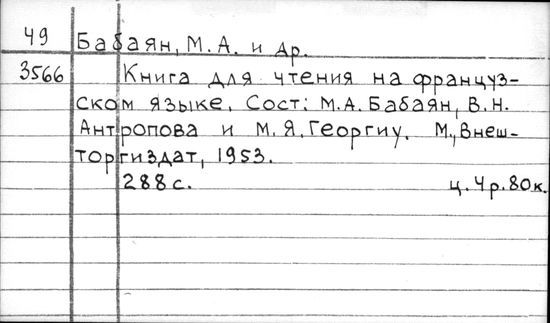 49 Бабаян, М.А. и др.
3566 Книга для чтения на француз-
ском языке. Сост: М.А. Бабаян, В.Н.
Антропова и М.Я. Георгиу. М., Внеш-
торгиздат, 1953.
288 с. ц. 4р. 80к.